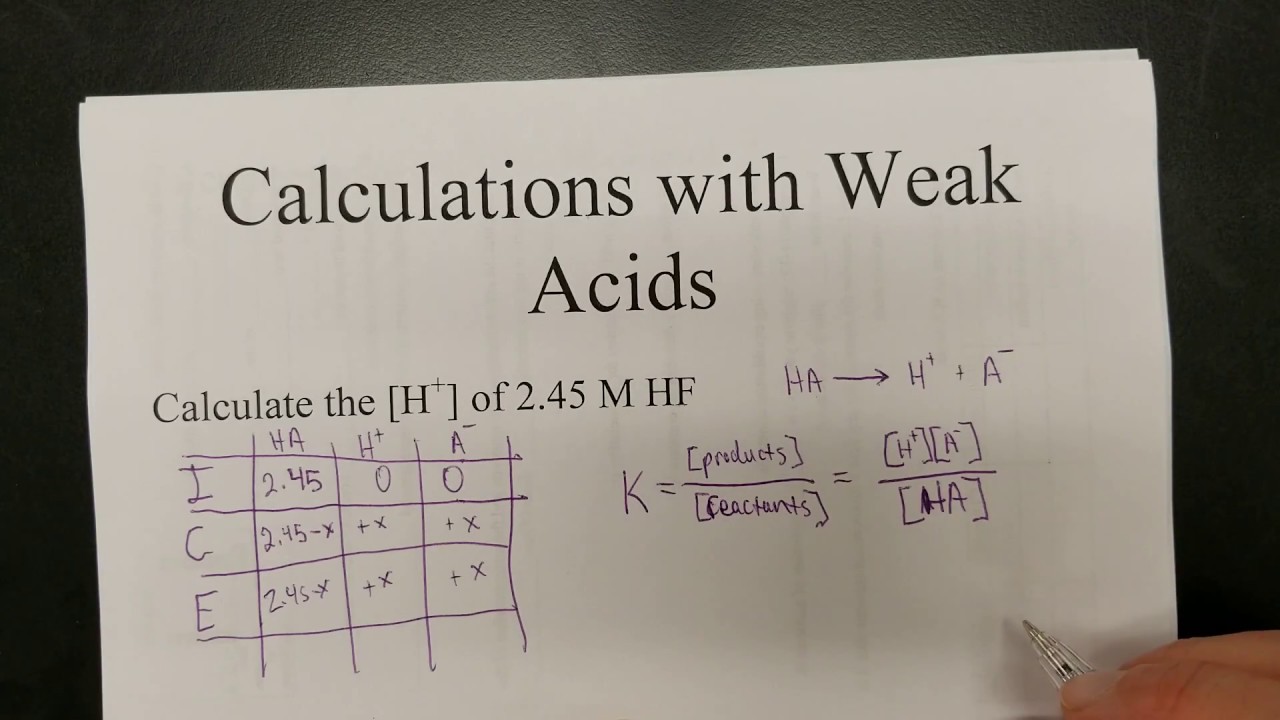 Calculations with Weak
Acids
HA ⟶ H⁺ + A⁻
Calculate the [H⁺] of 2.45 M HF
HA H⁺ A⁻
I 2.45 0 0
C 2.45-x +x +x
E 2.45-x +x +x
K = [products] / [reactants] = [H⁺][A⁻] / [HA]